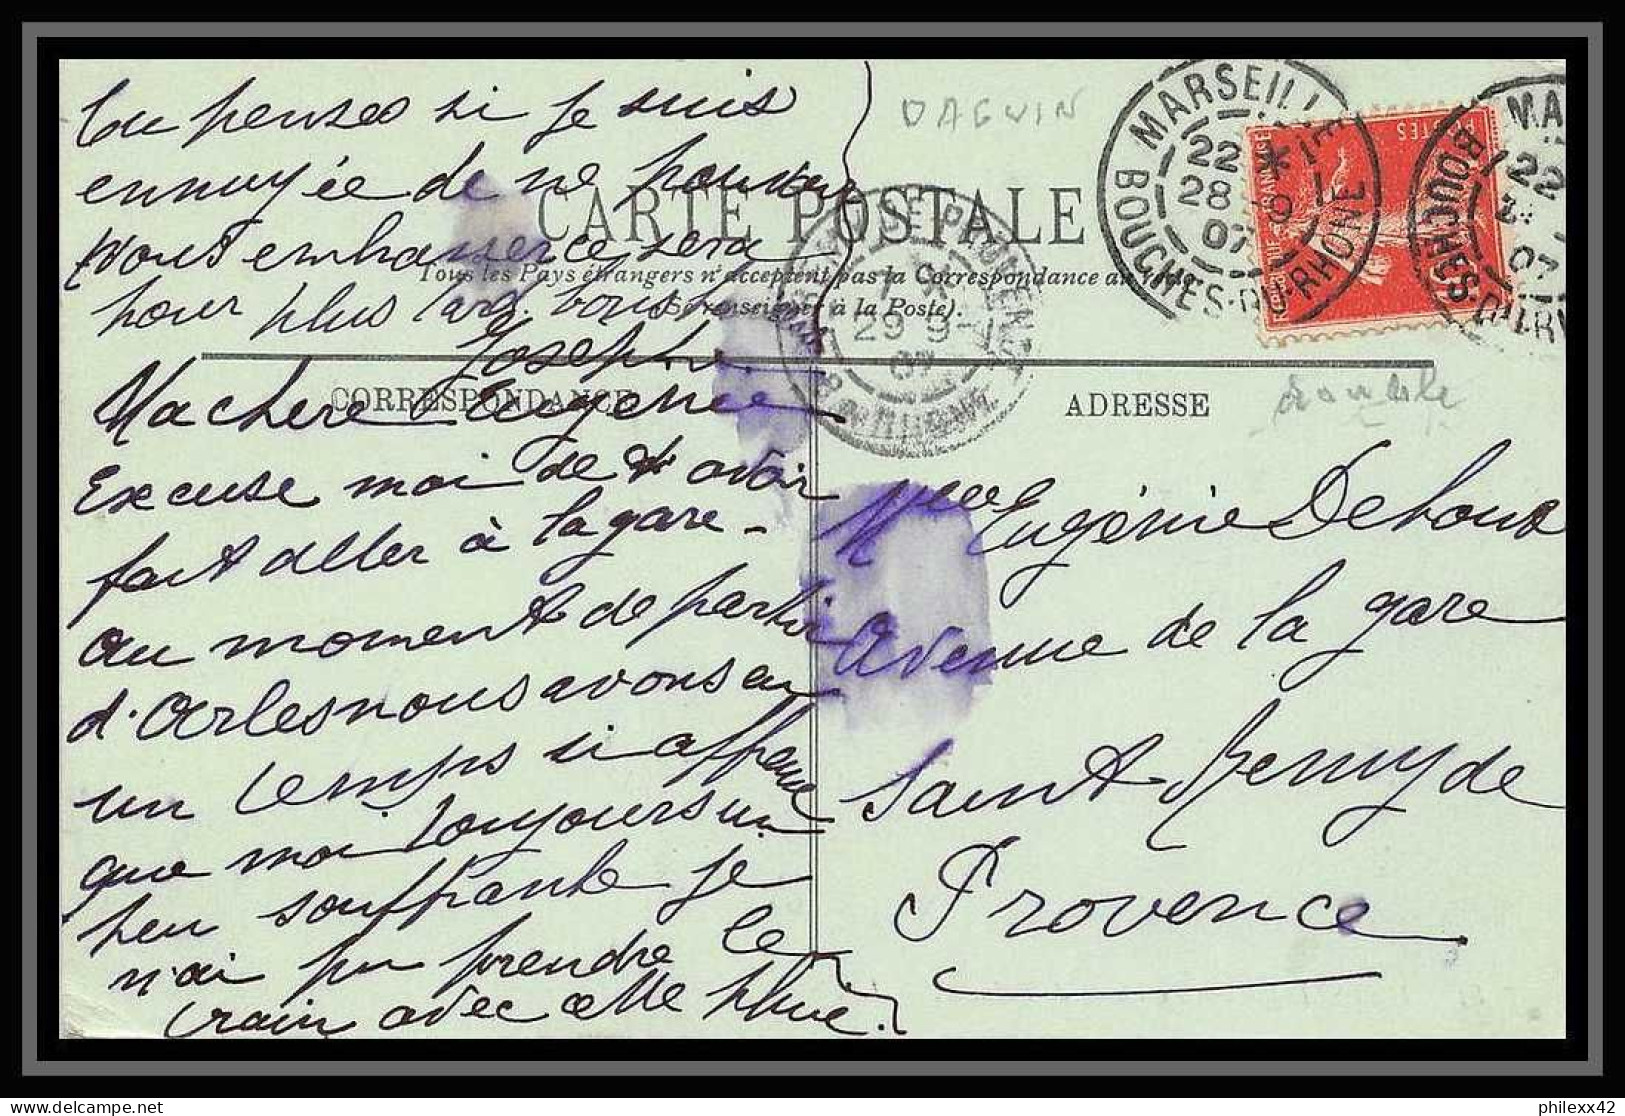 Tu penses si je suis
ennuyée de ne pouvoir
vous embrasser ce sera
pour plus tard. bons
Josephe
Ma chere Eugenie
Excuse moi de t'avoir
fait aller à la gare -
au moment de partir
d'Arles nous avons eu
un temps si affreux
que moi toujours un
peu souffrante je
n'ai pu prendre le
train avec cette pluie.
DAGUIN
CARTE POSTALE
Tous les Pays étrangers n'acceptent pas la Correspondance au
(Se renseigner à la Poste).
CORRESPONDANCE
ADRESSE
double
MARSEILLE
22 *
28 - 9
07
BOUCHES-DU-RHONE
POSTES
29 9
07
MA
22
07
BOUCHES-DU-RH
Mlle Eugénie
Avenue de la gare
Saint Remy de
Provence
philexx42